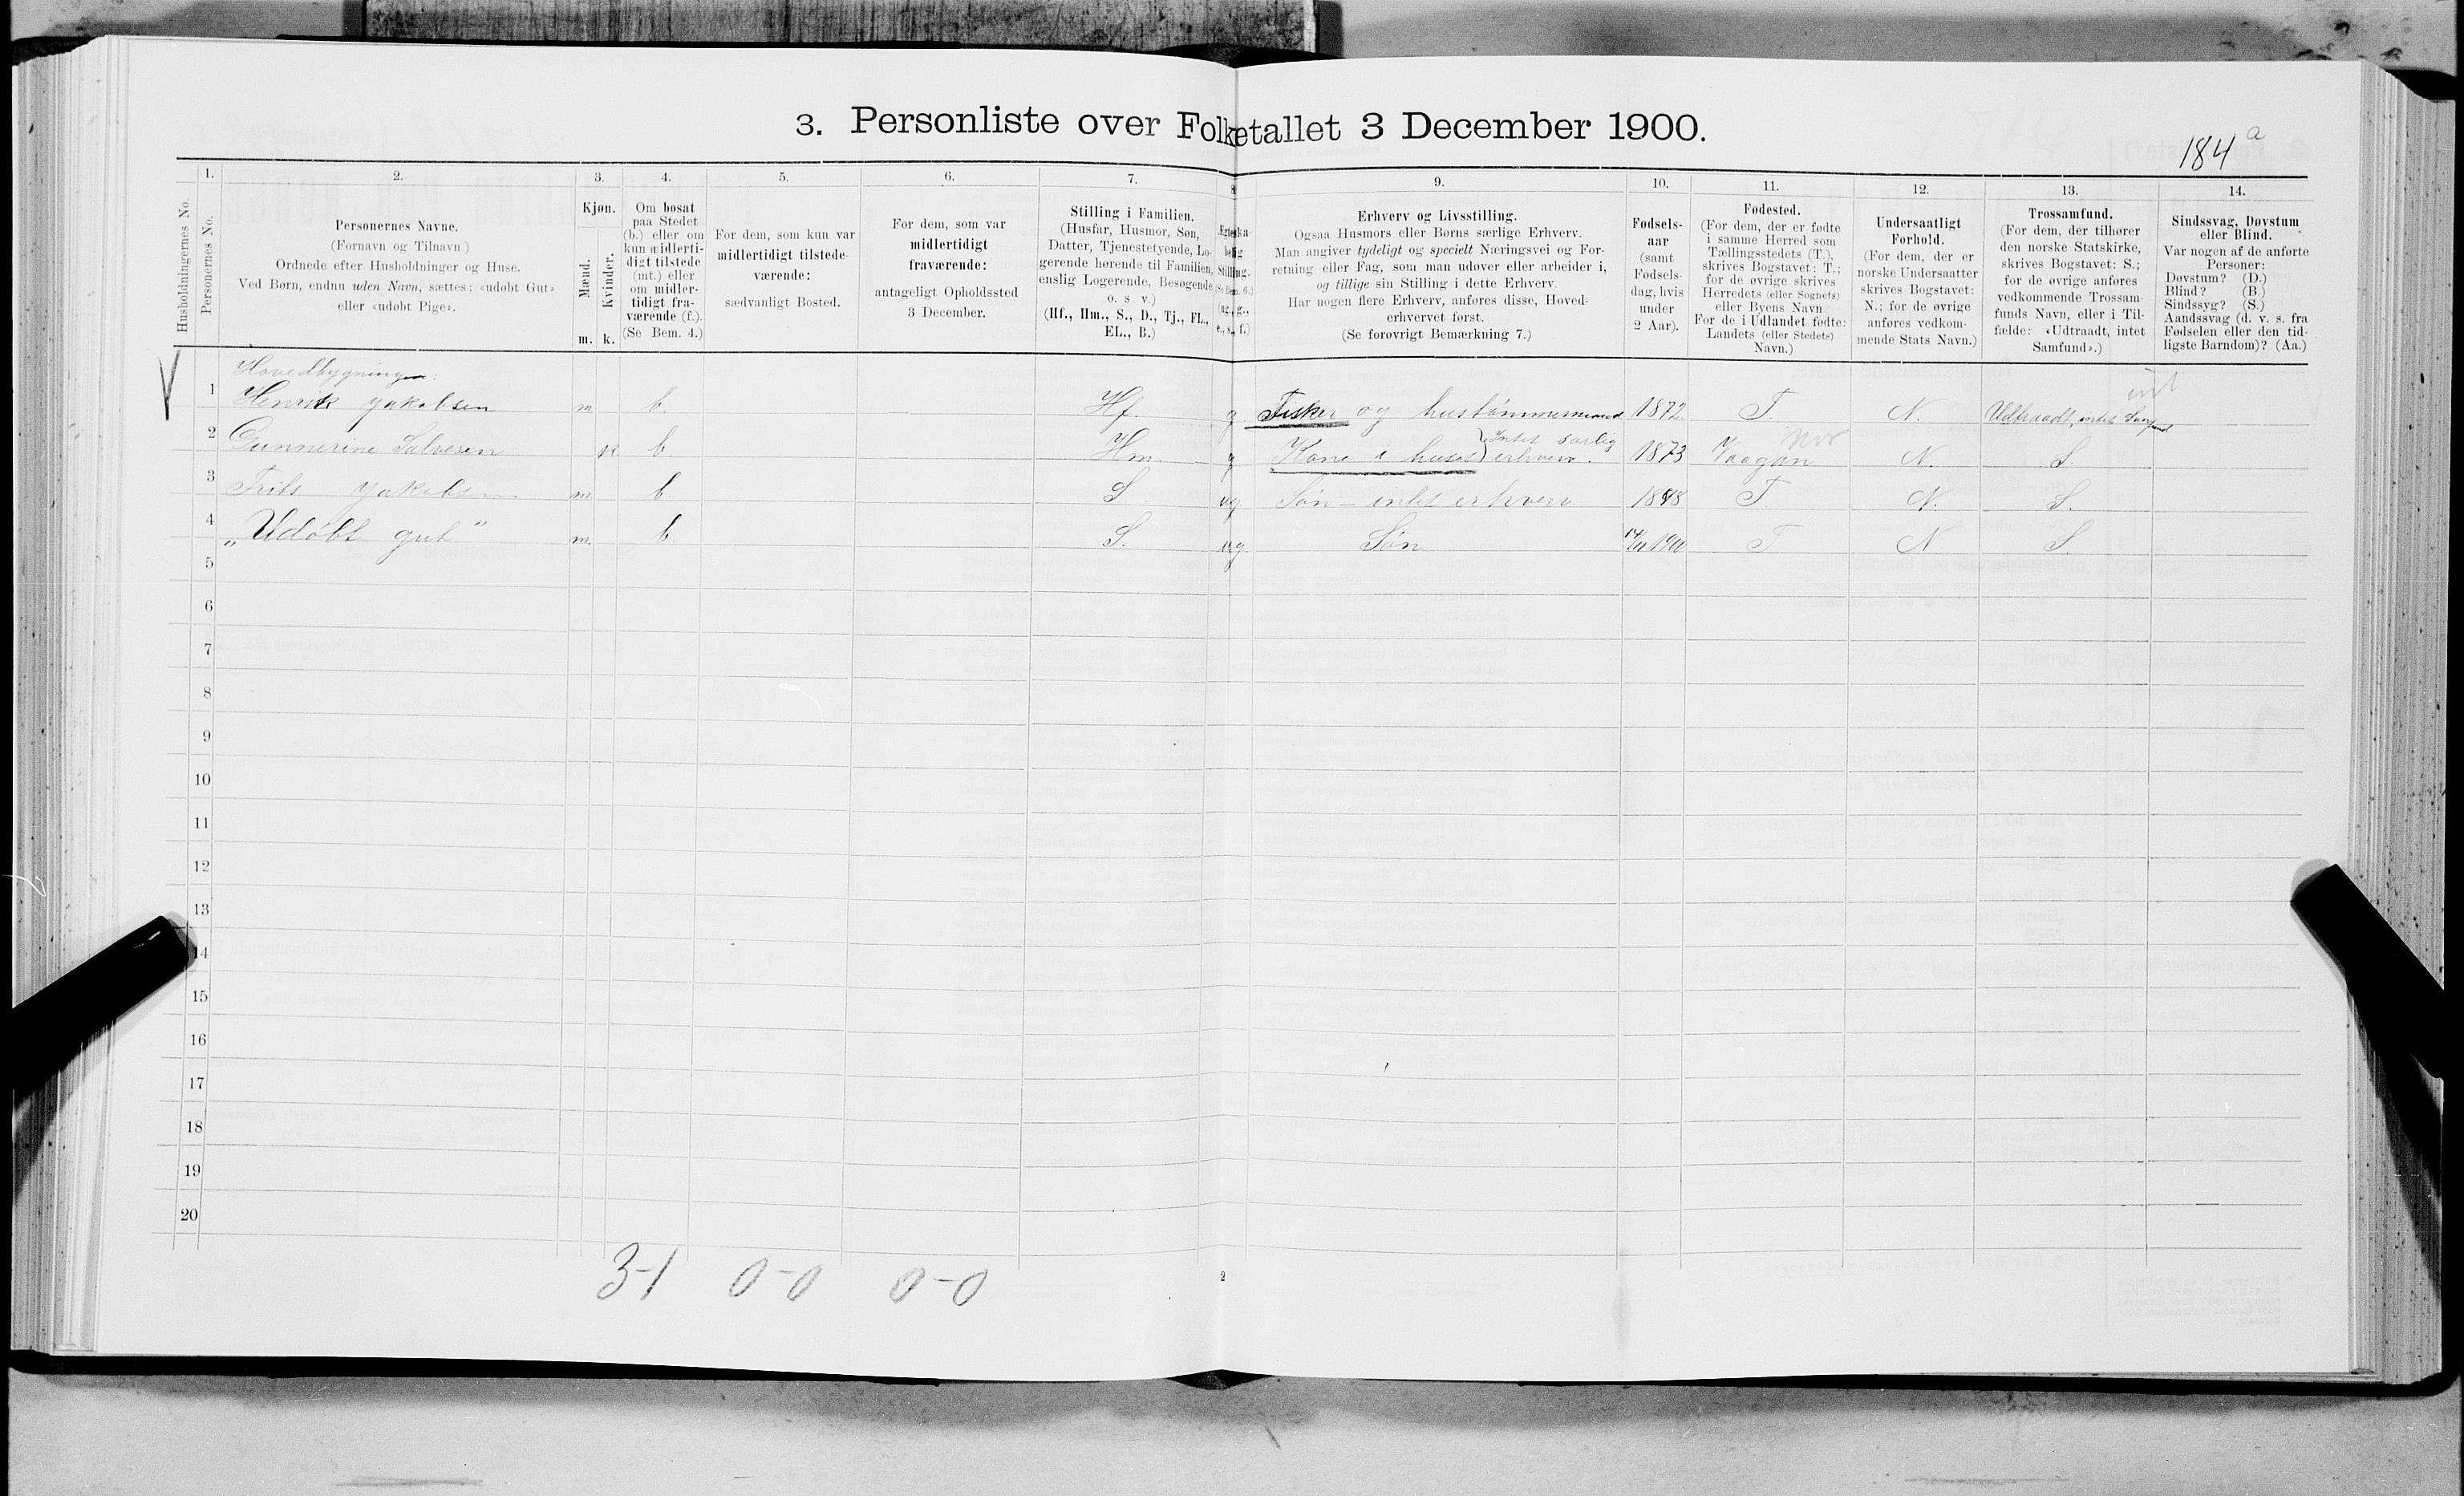 3. Personliste over Folketallet 3 December 1900.
184 a
1. 2. 3. 4. 5. 6. 7. 8 9. 10. 11. 12. 13. 14.
Husholdningernes No.
Personernes No.
Personernes Navne.
(Fornavn og Tilnavn.)
Ordnede efter Husholdninger og Huse.
Ved Børn, endnu uden Navn, sættes: «udøbt Gut»
eller «udøbt Pige».
Kjøn.
Mænd.
Kvinder.
m. k.
Om bosat
paa Stedet
(b.) eller om
kun midlerti-
digt tilstede
(mt.) eller
om midler-
tidigt fra-
værende (f.).
(Se Bem. 4.)
For dem, som kun var
midlertidigt tilstede-
værende:
sædvanligt Bosted.
For dem, som var
midlertidigt
fraværende:
antageligt Opholdssted
3 December.
Stilling i Familien.
(Husfar, Husmor, Søn,
Datter, Tjenestetyende, Lo-
gerende hørende til Familien,
enslig Logerende, Besøgende
o. s v.)
(Hf., Hm., S., D., Tj., FL.,
EL., B.)
Ægteska-
belig
Stilling.
(Se Bem. 6.)
(ug., g.,
e., s., f.)
Erhverv og Livsstilling.
Ogsaa Husmors eller Børns særlige Erhverv.
Man angiver tydeligt og specielt Næringsvei og For-
retning eller Fag, som man udøver eller arbeider i,
og tillige sin Stilling i dette Erhverv.
Har nogen flere Erhverv, anføres disse, Hoved-
erhvervet først.
(Se forøvrigt Bemærkning 7.)
Fødsels-
aar
(samt
Fødsels-
dag, hvis
under
2 Aar).
Fødested.
(For dem, der er fødte
i samme Herred som
Tællingsstedets (T.),
skrives Bogstavet: T.;
for de øvrige skrives
Herredets (eller Sognets)
eller Byens Navn
For de i Udlandet fødte:
Landets (eller Stedets)
Navn.)
Undersaatligt
Forhold.
(For dem, der er
norske Undersaatter
skrives Bogstavet:
N.; for de øvrige
anføres vedkom-
mende Stats Navn.)
Trossamfund.
(For dem, der tilhører
den norske Statskirke,
skrives Bogstavet: S.;
for de øvrige anføres
vedkommende Trossam-
funds Navn, eller i Til-
fælde: «Udtraadt, intet
Samfund».)
Sindssvag, Døvstum
eller Blind.
Var nogen af de anførte
Personer:
Døvstum? (D.)
Blind? (B.)
Sindssyg? (S.)
Aandssvag (d. v. s. fra
Fødselen eller den tid-
ligste Barndom)? (Aa.)
Hovedbygningen:
1 Henrik Jakobsen m b. Hf. g Fisker og hustømmermand 1872 T N. Udtraadt, intet Samfund
2 Gunnerine Salvesen k b. Hm. g Kone i huset } intet særlig erhverv. 1873 Vaagan N. S.
3 Frits Jakobsen m b S ug Søn - intet erhverv 1898 T N. S.
4 „Udøbt gut" m. b. S. ug. Søn 14/11 1900 T N S
5
6
7
8
9
10
11
12
13
14
15
16
17
18
19
20
3-1 0-0 0-0
2